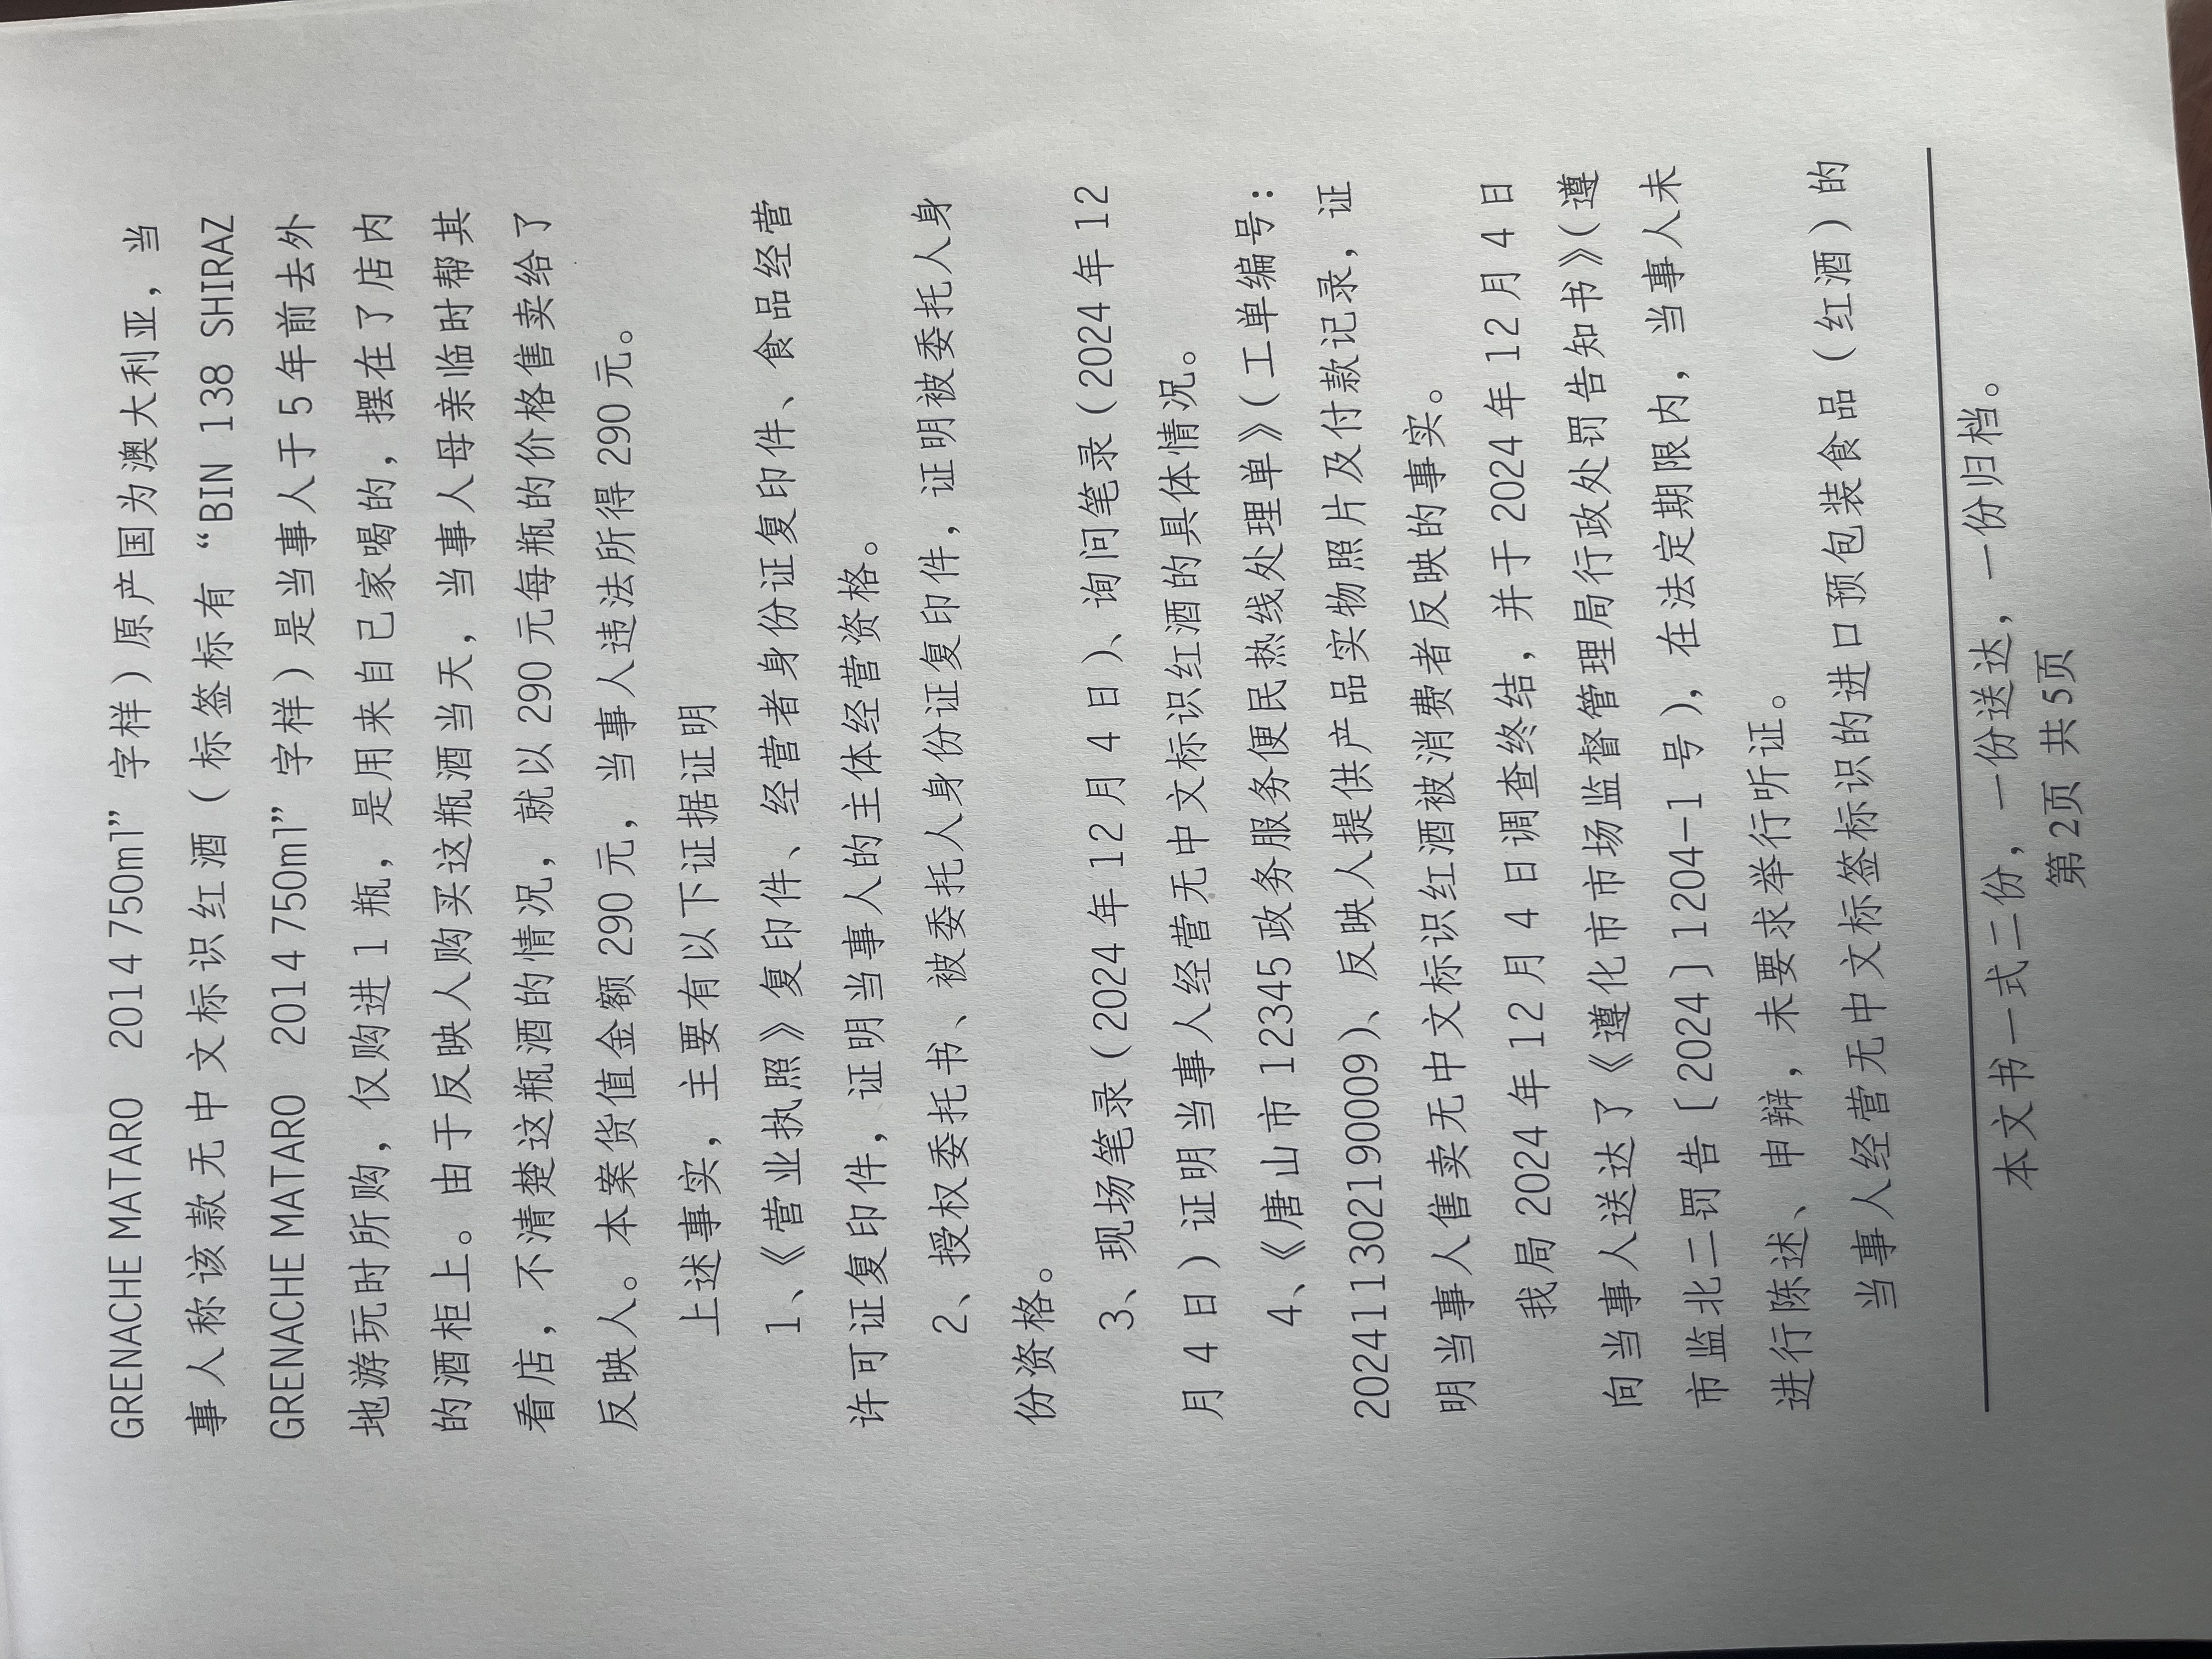 GRENACHE MATARO 2014 750ml”字样）原产国为澳大利亚，当
事人称该款无中文标识红酒（标签标有“BIN 138 SHIRAZ
GRENACHE MATARO 2014 750ml”字样）是当事人于5年前去外
地游玩时所购，仅购进1瓶，是用来自己家喝的，摆在了店内
的酒柜上。由于反映人购买这瓶酒当天，当事人母亲临时帮其
看店，不清楚这瓶酒的情况，就以290元每瓶的价格售卖给了
反映人。本案货值金额290元，当事人违法所得290元。
上述事实，主要有以下证据证明
1、《营业执照》复印件、经营者身份证复印件、食品经营
许可证复印件，证明当事人的主体经营资格。
2、授权委托书、被委托人身份证复印件，证明被委托人身
份资格。
3、现场笔录（2024年12月4日）、询问笔录（2024年12
月4日）证明当事人经营无中文标识红酒的具体情况。
4、《唐山市12345政务服务便民热线处理单》（工单编号：
20241130219​0009）、反映人提供产品实物照片及付款记录，证
明当事人售卖无中文标识红酒被消费者反映的事实。
我局2024年12月4日调查终结，并于2024年12月4日
向当事人送达了《遵化市市场监督管理局行政处罚告知书》（遵
市监北二罚告〔2024〕1204-1号），在法定期限内，当事人未
进行陈述、申辩，未要求举行听证。
当事人经营无中文标签标识的进口预包装食品（红酒）的
本文书一式二份，一份送达，一份归档。
第2页 共5页